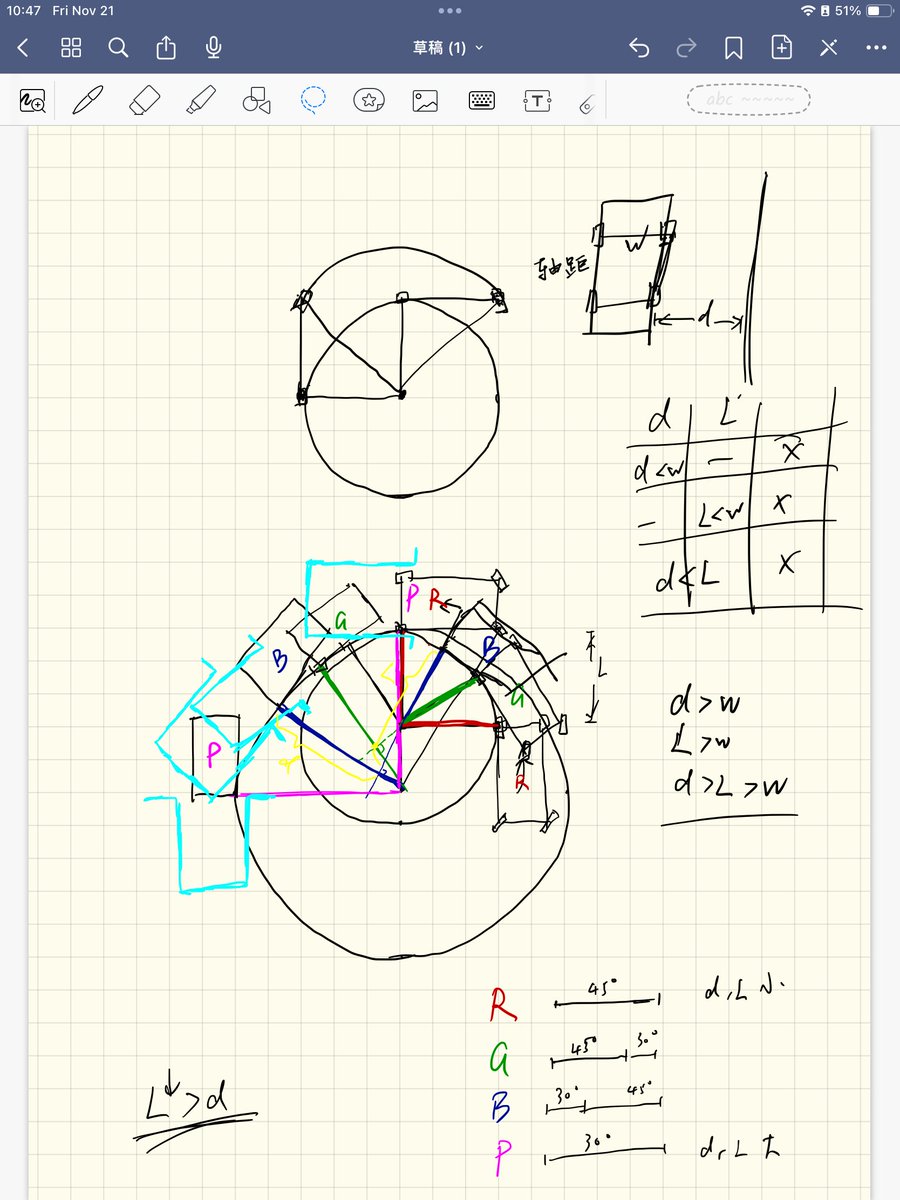 10:47 Fri Nov 21
51%
草稿 (1)
abc
轴距
W
d
d L
d<w — X
— L<w X
d<L X
P R
G
B
B
G
L
P
R
d
d>w
L>w
d>L>w
R 45° d,L 小
G 45° 30°
B 30° 45°
P 30° d,L 大
L↓>d